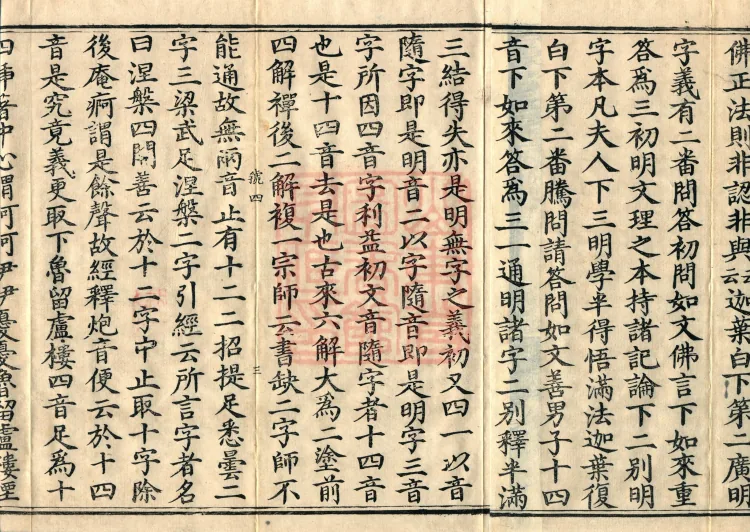 佛正法則非認非與云迦葉白下第二廣明
字義有二番問答初問如文佛言下如來重
答爲三初明文理之本持諸記論下二別明
字本凡夫人下三明學半得悟滿法迦葉復
白下第二番騰問請答問如文善男子十四
音下如來答爲三一通明諸字二別釋半滿
三結得失亦是明無字之義初又四一以音
隨字即是明音二以字隨音即是明字三音
字所因四音字利益初文音隨字者十四音
也是十四音去是也古來六解大爲二塗前
四解禪後二解複一宗師云書缺二字師不
號四
三
能通故無兩音止有十二二招提足悉曇二
字三梁武足涅槃二字引經云所言字者名
曰涅槃四開善云於十二字中止取十字除
後庵痾謂是餘聲故經釋炮音便云於十四
音是究竟義更取下魯留盧樓四音足爲十
四 者中心謂阿阿伊伊憂憂魯留盧樓